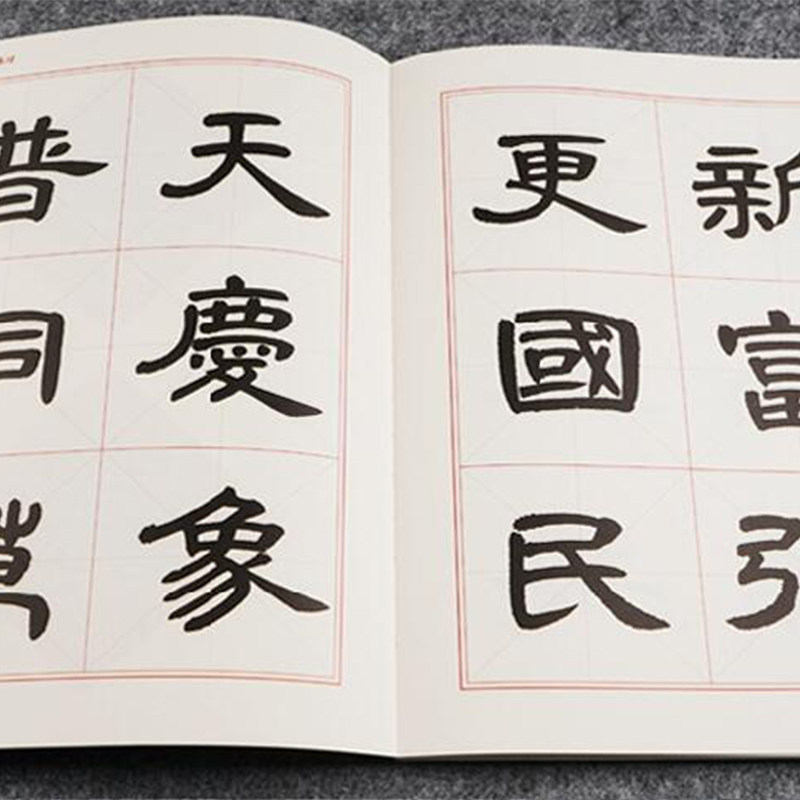 普天
同慶
萬象
更新
國富
民